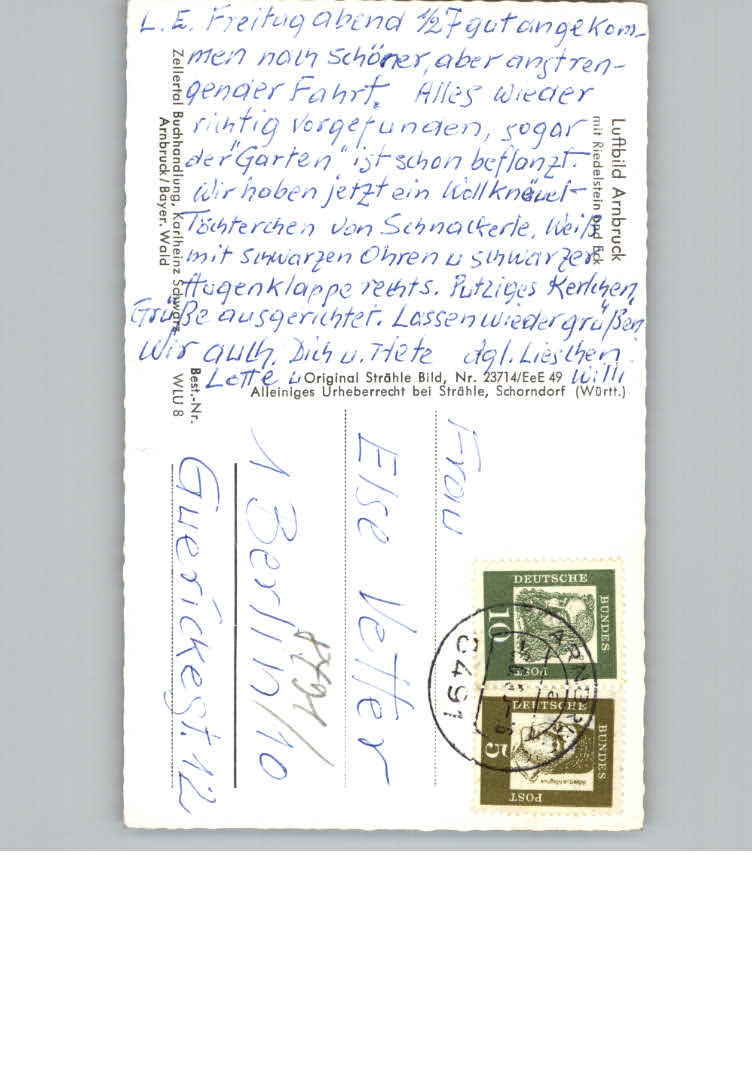 L. E. Freitag abend 1/2 7 gut angekom-
men nach schöner, aber anstren-
gender Fahrt. Alles wieder
richtig vorgefunden, sogar
der "Garten" ist schon beflanzt.
Wir haben jetzt ein Wollknäuel-
Töchterchen von Schnackerle. Weiß
mit schwarzen Ohren u schwarzer
Augenklappe rechts. Putziges Kerlchen,
Grüße ausgerichtet. Lassen wieder grüßen
Wir auch. Dich u. Hete dgl. Lieschen.
Lotte u Willi
Luftbild Arnbruck
mit Riedelstein und Eck
Zellertal Buchhandlung, Karlheinz Schwarz
Arnbruck/Bayer. Wald
Best.-Nr.
WLU 8
Original Strähle Bild, Nr. 23714/EeE 49
Alleiniges Urheberrecht bei Strähle, Schorndorf (Württ.)
Frau
Else Vetter
1 Berlin 10
Guerickest. 12
DEUTSCHE
BUNDES
POST
10
DEUTSCHE
BUNDES
POST
5
8491